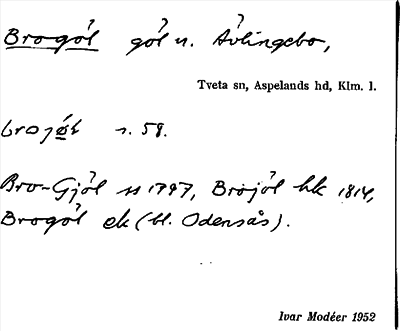 Brogöl göl n. Århult Avlingebo,
Tveta sn, Aspelands hd, Klm. l.
brojø̀l n. 58.
Bro-Gjöl ss 1797, Brojöl hk 1814,
Brogöl ek (bl. Odensås).
Ivar Modéer 1952